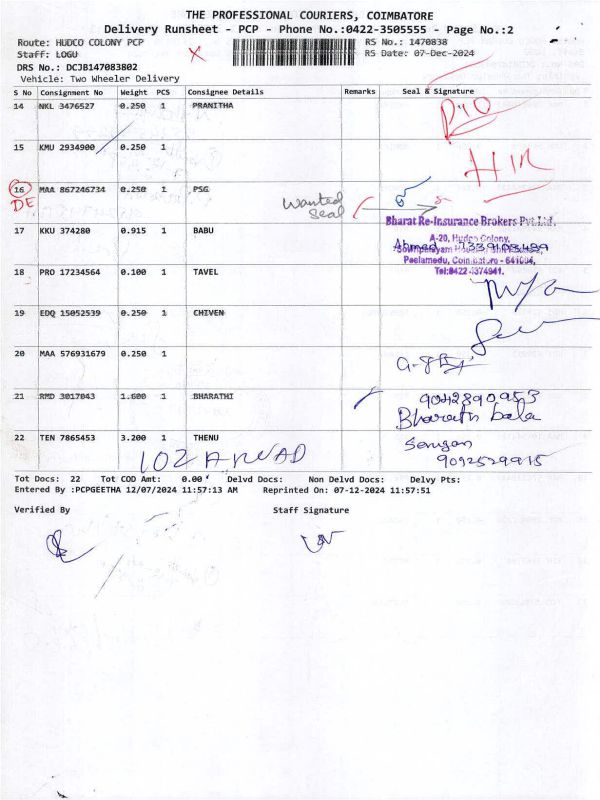 THE PROFESSIONAL COURIERS, COIMBATORE
Delivery Runsheet - PCP - Phone No.:0422-3505555 - Page No.:2
Route: HUDCO COLONY PCP RS No.: 1470838
Staff: LOGU RS Date: 07-Dec-2024
DRS No.: DCJB147083802
Vehicle: Two Wheeler Delivery
S No Consignment No Weight PCS Consignee Details Remarks Seal & Signature
14 NKL 3476527 0.250 1 PRANITHA
15 KMU 2934900 0.250 1
16 MAA 867246734 0.250 1 PSG
DE
Wanted
Seal
Bharat Re-Insurance Brokers Pvt.Ltd.
A-20, Hudco Colony,
Peelamedu, Coimbatore - 641004,
Tel:0422-4374941.
Ahmed
17 KKU 374280 0.915 1 BABU
18 PRO 17234564 0.100 1 TAVEL
19 EDQ 15052539 0.250 1 CHIVEN
20 MAA 576931679 0.250 1
21 RMD 3017043 1.600 1 BHARATHI 9042890953
Bharath bala
22 TEN 7865453 3.200 1 THENU
9092529915
Tot Docs: 22 Tot COD Amt: 0.00 Delvd Docs: Non Delvd Docs: Delvy Pts:
Entered By :PCPGEETHA 12/07/2024 11:57:13 AM Reprinted On: 07-12-2024 11:57:51
Verified By Staff Signature